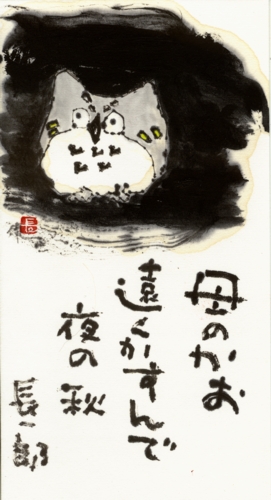 母のかお
遠くかすんで
夜の秋
長一郎
長